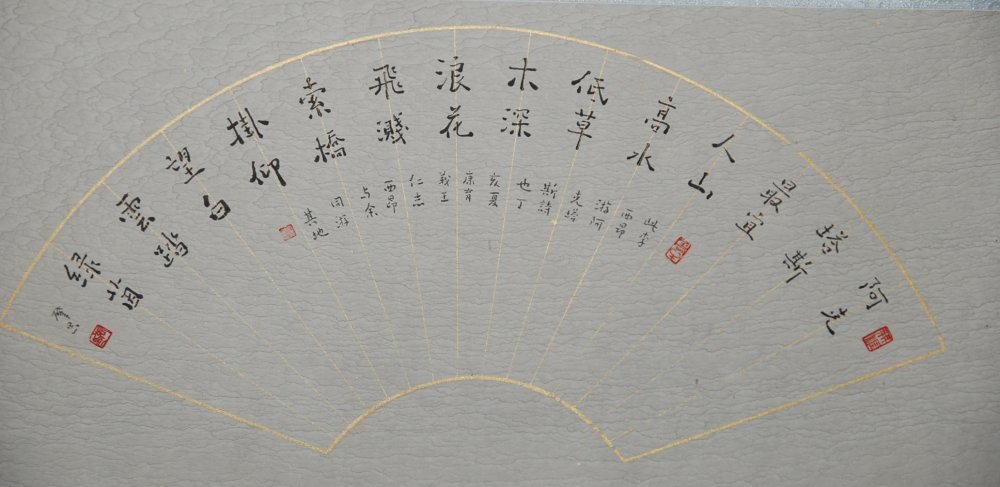 阿克
塔斯
最宜
人山
高水
低草
木深
浪花
飛濺
索橋
掛仰
望白
雲踏
綠茵
此李
西昂
游阿
克塔
斯詩
也丁
亥夏
康育
義王
仁志
西昂
与余
同游
其地